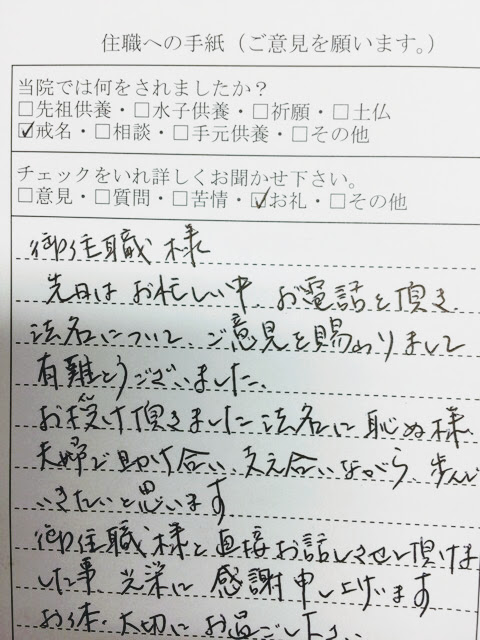 住職への手紙（ご意見を願います。）
当院では何をされましたか？
□先祖供養・□水子供養・□祈願・□土仏
☑戒名・□相談・□手元供養・□その他
チェックをいれ詳しくお聞かせ下さい。
□意見・□質問・□苦情・☑お礼・□その他
御住職様
先日はお忙しい中、お電話を頂き
法名について、ご意見を賜わりまして
有難とうございました、
お授け頂きました法名に恥ぬ様、
夫婦で助け合い、支え合いながら、歩んで
いきたいと思います
御住職様と直接お話しさせて頂けま
した事 光栄に 感謝申し上げます
お体、大切にお過ごし下さい